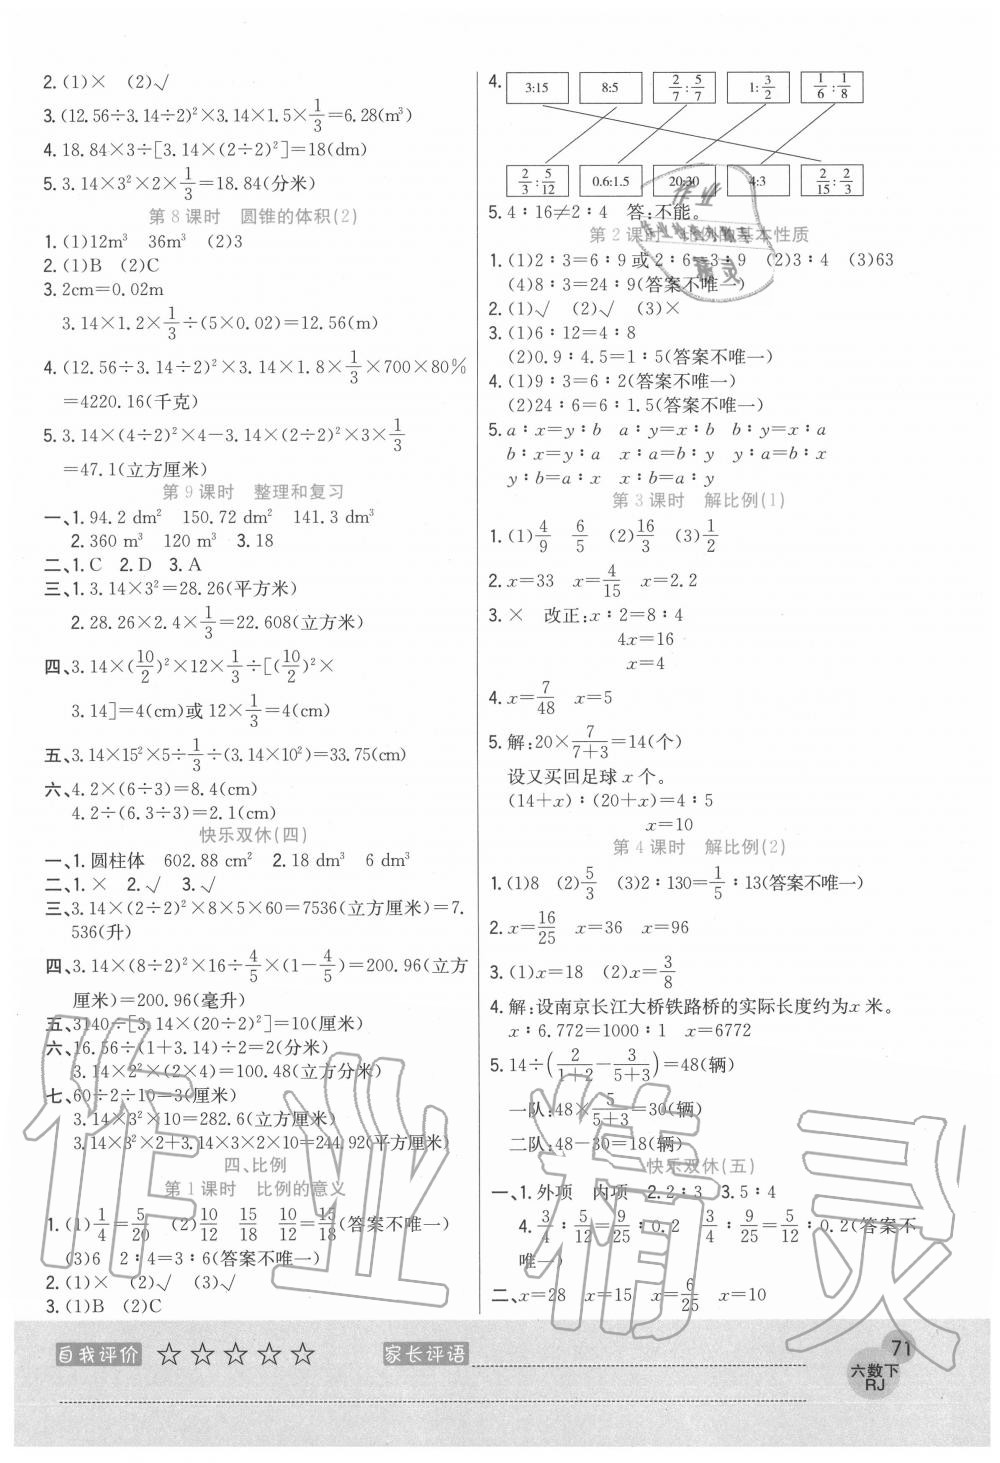 2. (1)× (2)√
3. (12.56÷3.14÷2)²×3.14×1.5×1/3=6.28(m³)
4. 18.84×3÷[3.14×(2÷2)²]=18(dm)
5. 3.14×3²×2×1/3=18.84(分米)
第8课时 圆锥的体积(2)
1. (1)12m³ 36m³ (2)3
2. (1)B (2)C
3. 2cm=0.02m
3.14×1.2×1/3÷(5×0.02)=12.56(m)
4. (12.56÷3.14÷2)²×3.14×1.8×1/3×700×80%
=4220.16(千克)
5. 3.14×(4÷2)²×4-3.14×(2÷2)²×3×1/3
=47.1(立方厘米)
第9课时 整理和复习
一、1. 94.2 dm² 150.72 dm² 141.3 dm³
2. 360 m³ 120 m³ 3. 18
二、1. C 2. D 3. A
三、1. 3.14×3²=28.26(平方米)
2. 28.26×2.4×1/3=22.608(立方米)
四、3.14×(10/2)²×12×1/3÷[(10/2)²×
3.14]=4(cm)或12×1/3=4(cm)
五、3.14×15²×5÷1/3÷(3.14×10²)=33.75(cm)
六、4.2×(6÷3)=8.4(cm)
4.2÷(6.3÷3)=2.1(cm)
快乐双休(四)
一、1. 圆柱体 602.88 cm² 2. 18 dm³ 6 dm³
二、1. × 2. √ 3. √
三、3.14×(2÷2)²×8×5×60=7536(立方厘米)=7.
536(升)
四、3.14×(8÷2)²×16÷4/5×(1-4/5)=200.96(立方
厘米)=200.96(毫升)
五、3140÷[3.14×(20÷2)²]=10(厘米)
六、16.56÷(1+3.14)÷2=2(分米)
3.14×2²×(2×4)=100.48(立方分米)
七、60÷2÷10=3(厘米)
3.14×3²×10=282.6(立方厘米)
3.14×3²×2+3.14×3×2×10=244.92(平方厘米)
四、比例
第1课时 比例的意义
1. (1)1/4=5/20 (2)10/12 15/18 10/12=15/18(答案不唯一)
(3)6 2∶4=3∶6(答案不唯一)
2. (1)× (2)√ (3)√
3. (1)B (2)C
4. 3:15 8:5 2/7:5/7 1:3/2 1/6:1/8
2/3:5/12 0.6:1.5 20:30 4:3 2/15:2/3
5. 4∶16≠2∶4 答:不能。
第2课时 比例的基本性质
1. (1)2∶3=6∶9或2∶6=3∶9 (2)3∶4 (3)63
(4)8∶3=24∶9(答案不唯一)
2. (1)√ (2)√ (3)×
3. (1)6∶12=4∶8
(2)0.9∶4.5=1∶5(答案不唯一)
4. (1)9∶3=6∶2(答案不唯一)
(2)24∶6=6∶1.5(答案不唯一)
5. a∶x=y∶b a∶y=x∶b b∶y=x∶a
b∶x=y∶a x∶a=b∶y y∶a=b∶x
y∶b=a∶x x∶b=a∶y
第3课时 解比例(1)
1. (1)4/9 6/5 (2)16/3 (3)1/2
2. x=33 x=4/15 x=2.2
3. × 改正:x∶2=8∶4
4x=16
x=4
4. x=7/48 x=5
5. 解:20×7/(7+3)=14(个)
设又买回足球x个。
(14+x)∶(20+x)=4∶5
x=10
第4课时 解比例(2)
1. (1)8 (2)5/3 (3)2∶130=1/5∶13(答案不唯一)
2. x=16/25 x=36 x=96
3. (1)x=18 (2)x=3/8
4. 解:设南京长江大桥铁路桥的实际长度约为x米。
x∶6.772=1000∶1 x=6772
5. 14÷(2/(1+2)-3/(5+3))=48(辆)
一队:48×5/(5+3)=30(辆)
二队:48-30=18(辆)
快乐双休(五)
一、1. 外项 内项 2. 2∶3 3. 5∶4
4. 3/4∶5/12=9/25∶0.2 3/4∶9/25=5/12∶0.2(答案不
唯一)
二、x=28 x=15 x=6/25 x=10
自我评价 ☆☆☆☆☆ 家长评语
71
六数下
RJ
作业精灵